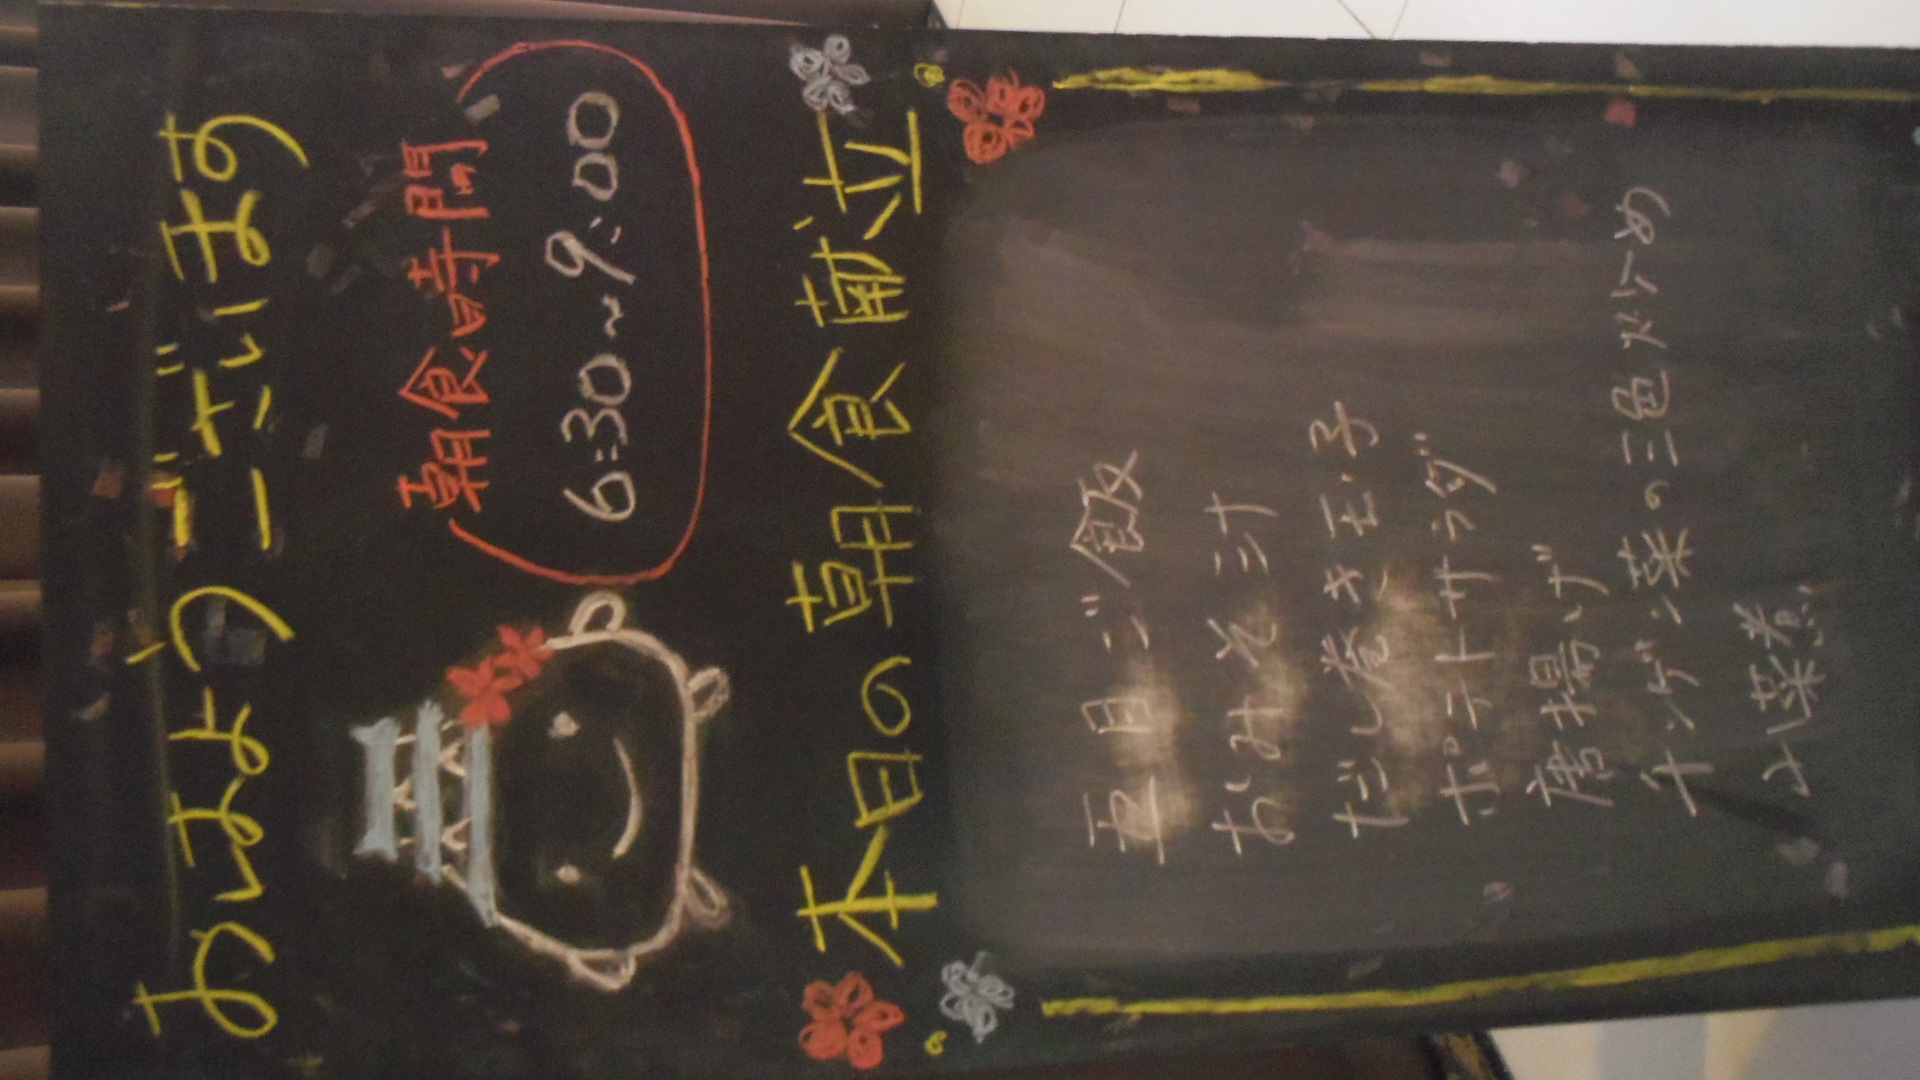 おはようございます
朝食時間
6:30~9:00
本日の朝食献立
五目ご飯
おみそ汁
だし巻き玉子
ポテトサラダ
唐揚げ
チンゲン菜の三色炒め
小菜煮